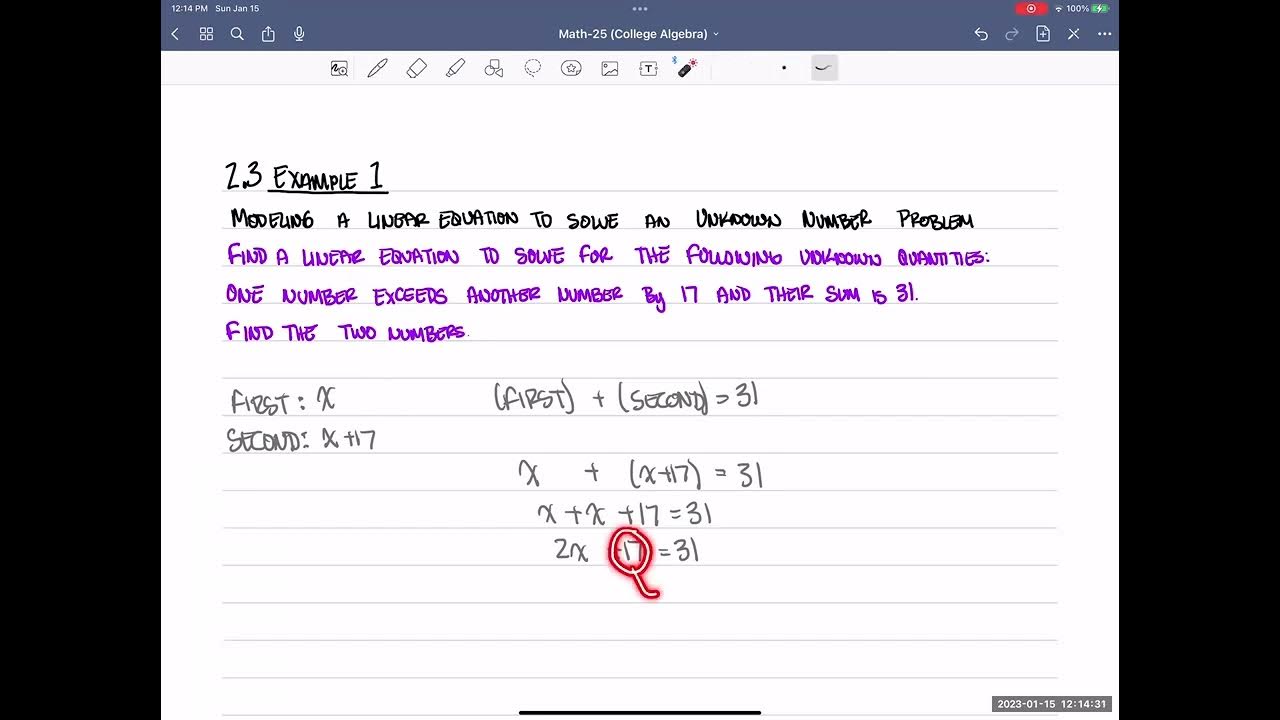 12:14 PM Sun Jan 15
100%
Math-25 (College Algebra)
T
2.3 EXAMPLE 1
MODELING A LINEAR EQUATION TO SOLVE AN UNKNOWN NUMBER PROBLEM
FIND A LINEAR EQUATION TO SOLVE FOR THE FOLLOWING UNKNOWN QUANTITIES:
ONE NUMBER EXCEEDS ANOTHER NUMBER BY 17 AND THEIR SUM IS 31.
FIND THE TWO NUMBERS.
FIRST: x (FIRST) + (SECOND) = 31
SECOND: x+17
x + (x+17) = 31
x + x + 17 = 31
2x +17 = 31
2023-01-15 12:14:31